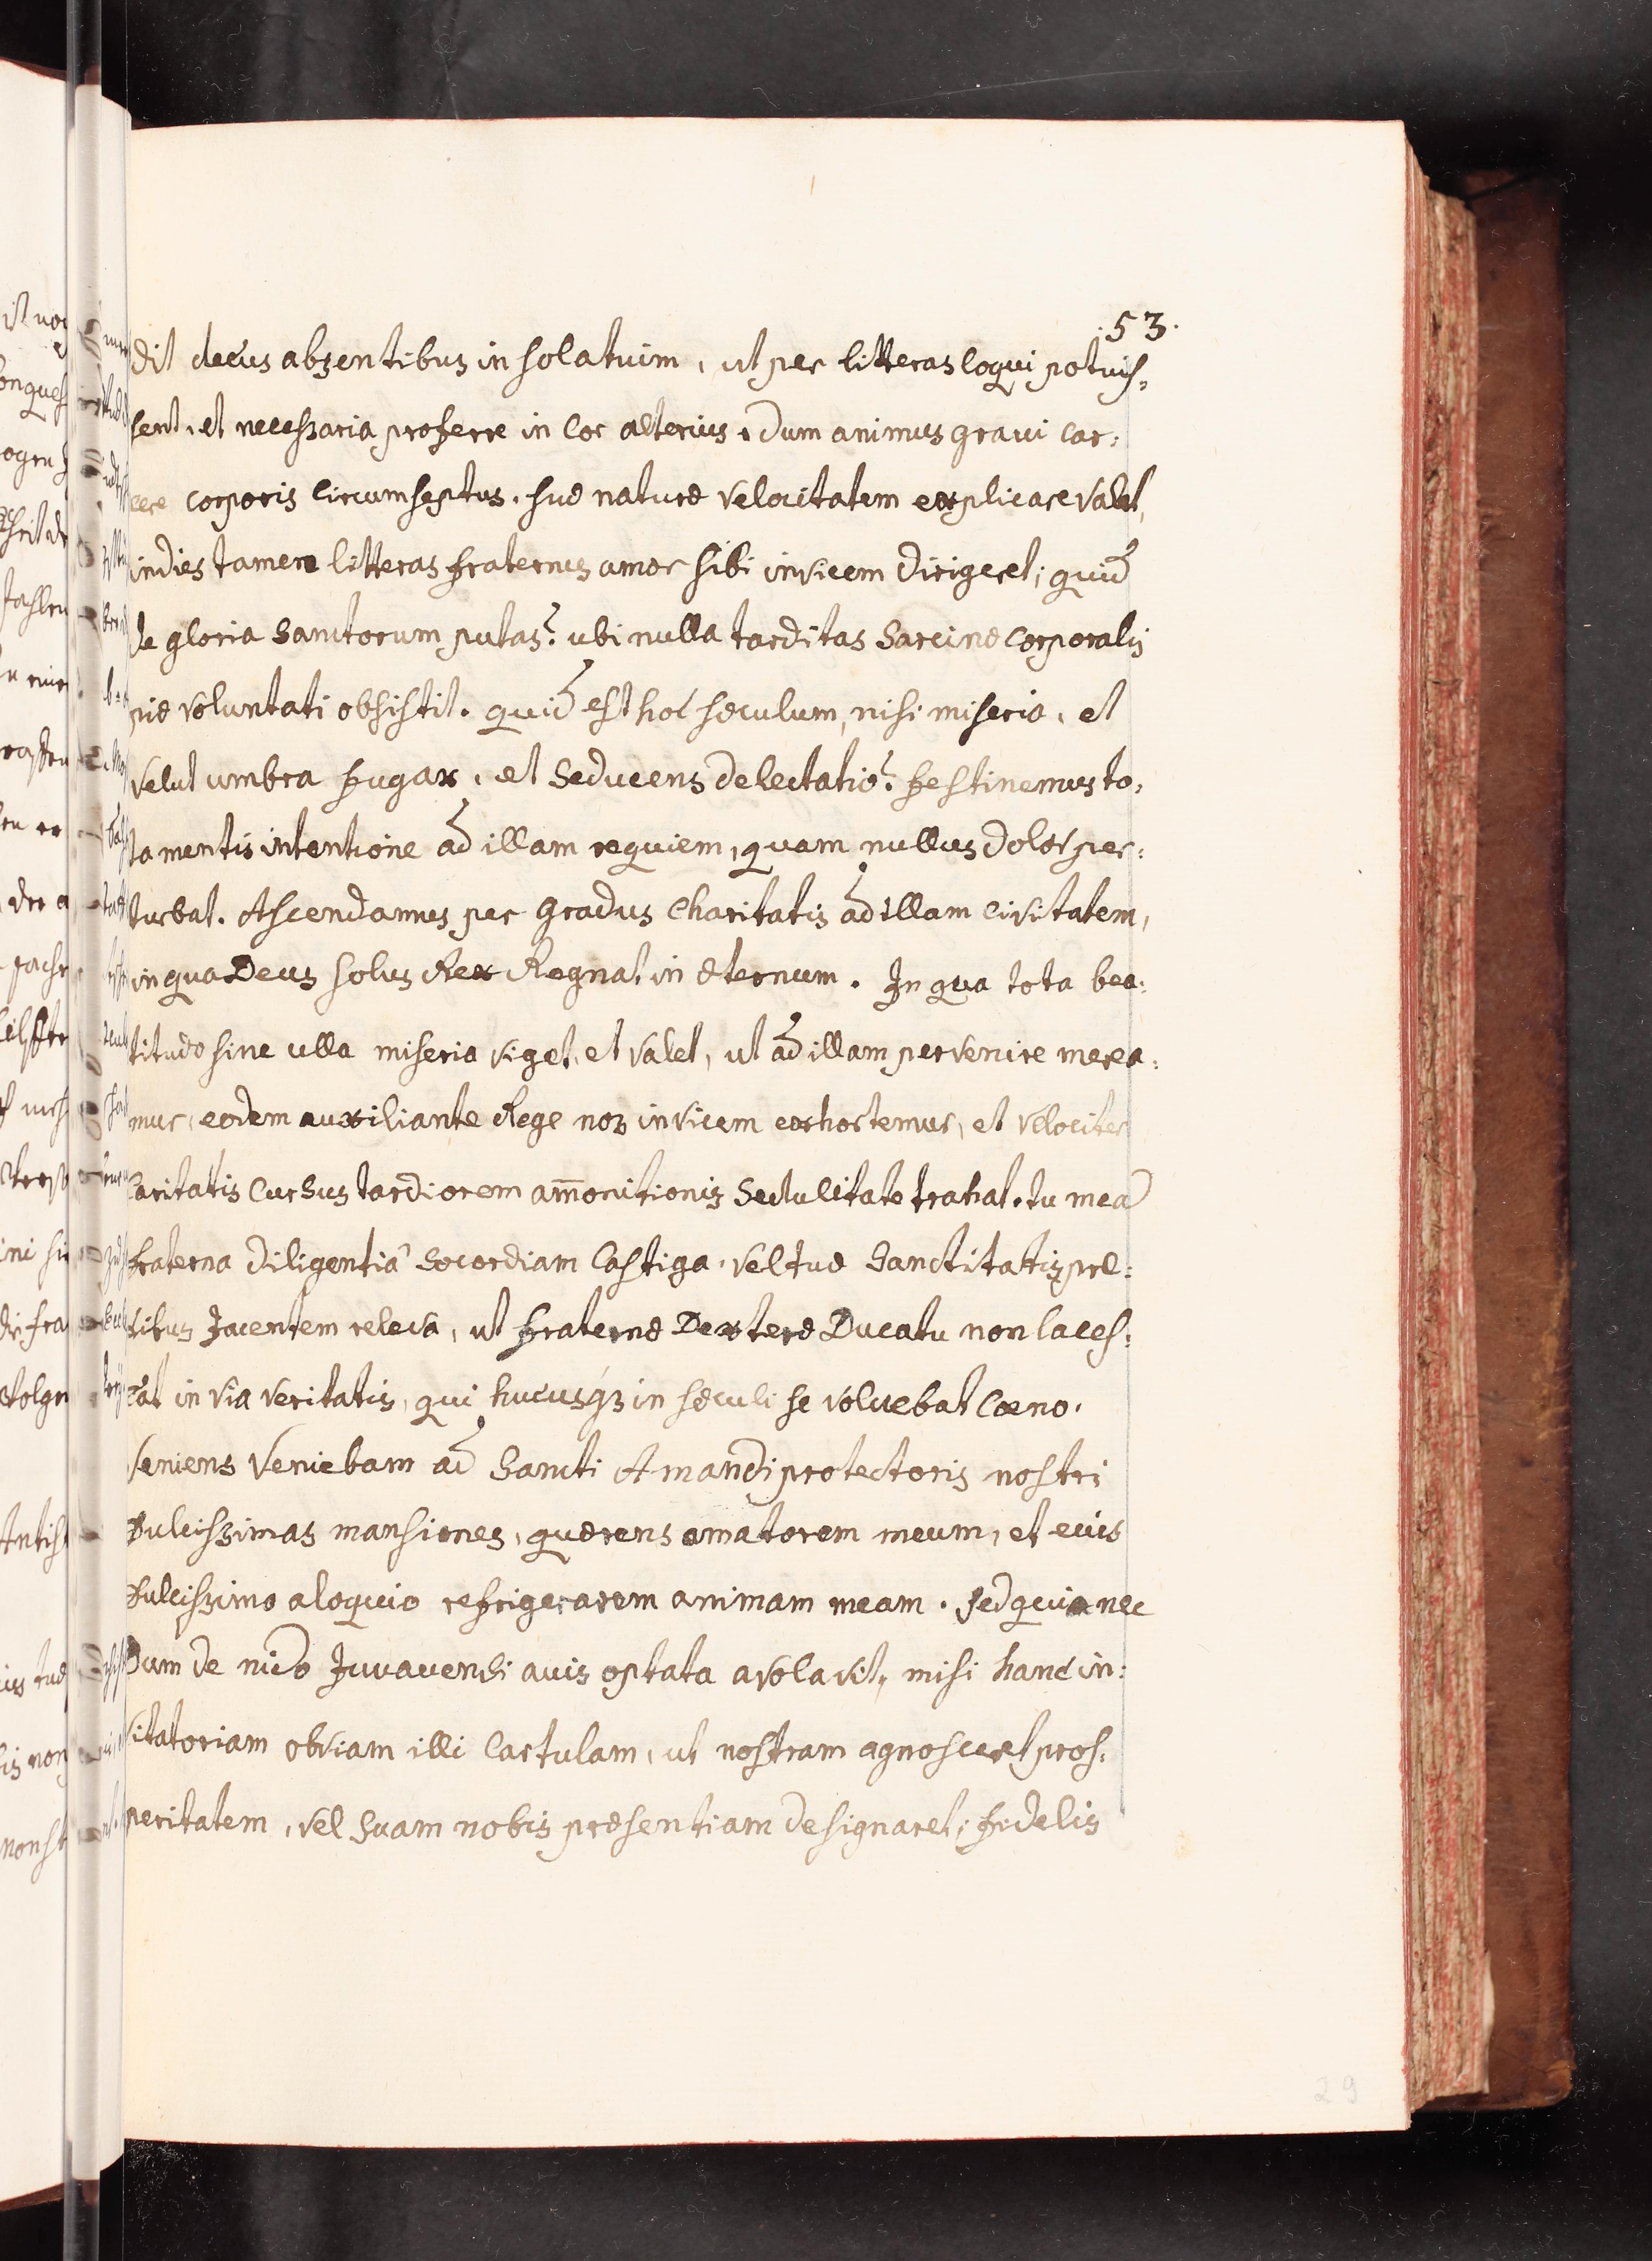 .53.
dit decus absentibus in solatium, ut per litteras loqui potuis=
sent, et necessaria proferre in Cor alterius. Dum animus gravi Car:
cere Corporis Circumseptus. suæ naturæ Velocitatem explicare Valet,
indies tamen litteras fraternus amor sibi invicem Dirigeret; quid
de gloria Sanctorum putas? ubi nulla tarditas Sarcinæ Corporalis
piæ Voluntati obsistit. quid est hoc sæculum, nisi miseria, et
Velut umbra fugax, et Seducens Delectatio? festinemus to,
ta mentis intentione ad illam requiem, quam nullus Dolor per:
turbat. Ascendamus per Gradus Charitatis ad illam Civitatem,
in qua Deus solus Rex Regnat in æternum. In qua tota bea:
titudo sine ulla miseria Viget, et Valet, ut ad illam pervenire merea:
mur, eodem auxiliante Rege nos invicem exhortemur, et Velociter
Caritatis Cursus tardiorem am̄onitionis Sedulitate trahat. tu mea
fraterna Diligentiâ Socordiam Castiga. Vel tuæ Sanctitatis pre:
cibus Jacentem releva, ut fraternæ Dexteræ Ducatu non laces:
cat in Via Veritatis, qui hucusq3 in sæculi se volvebat Cœno.
Veniens Veniebam ad Sancti Amandi protectoris nostri
Dulcissimas mansiones, quærens amatorem meum, et eius
Dulcissimo aloquio refrigerarem animam meam. sed quia nec
Dum de nido Juvavensi avis optata aVolavit, misi hanc in:
Vitatoriam obviam illi Cartulam, ut nostram agnosceret pros:
peritatem, Vel Suam nobis præsentiam Designaret; fidelis
29